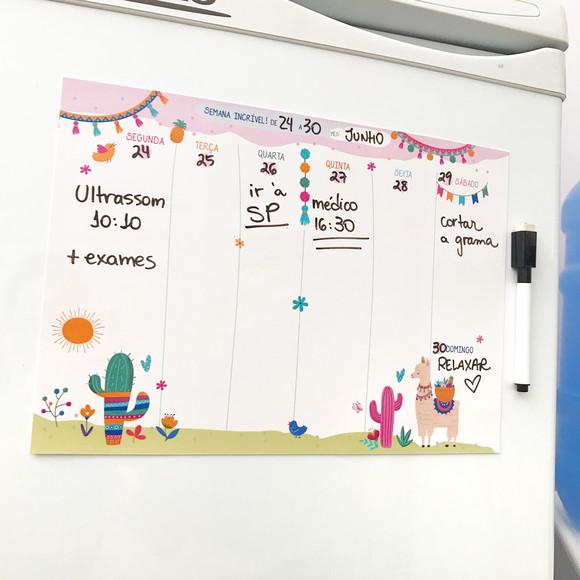 SEMANA INCRÍVEL! DE 24 A 30 MÊS JUNHO
SEGUNDA
24
Ultrassom
10:10
+ exames
TERÇA
25
QUARTA
26
ir à
SP
QUINTA
27
médico
16:30
SEXTA
28
29 SÁBADO
cortar
a grama
30 DOMINGO
RELAXAR